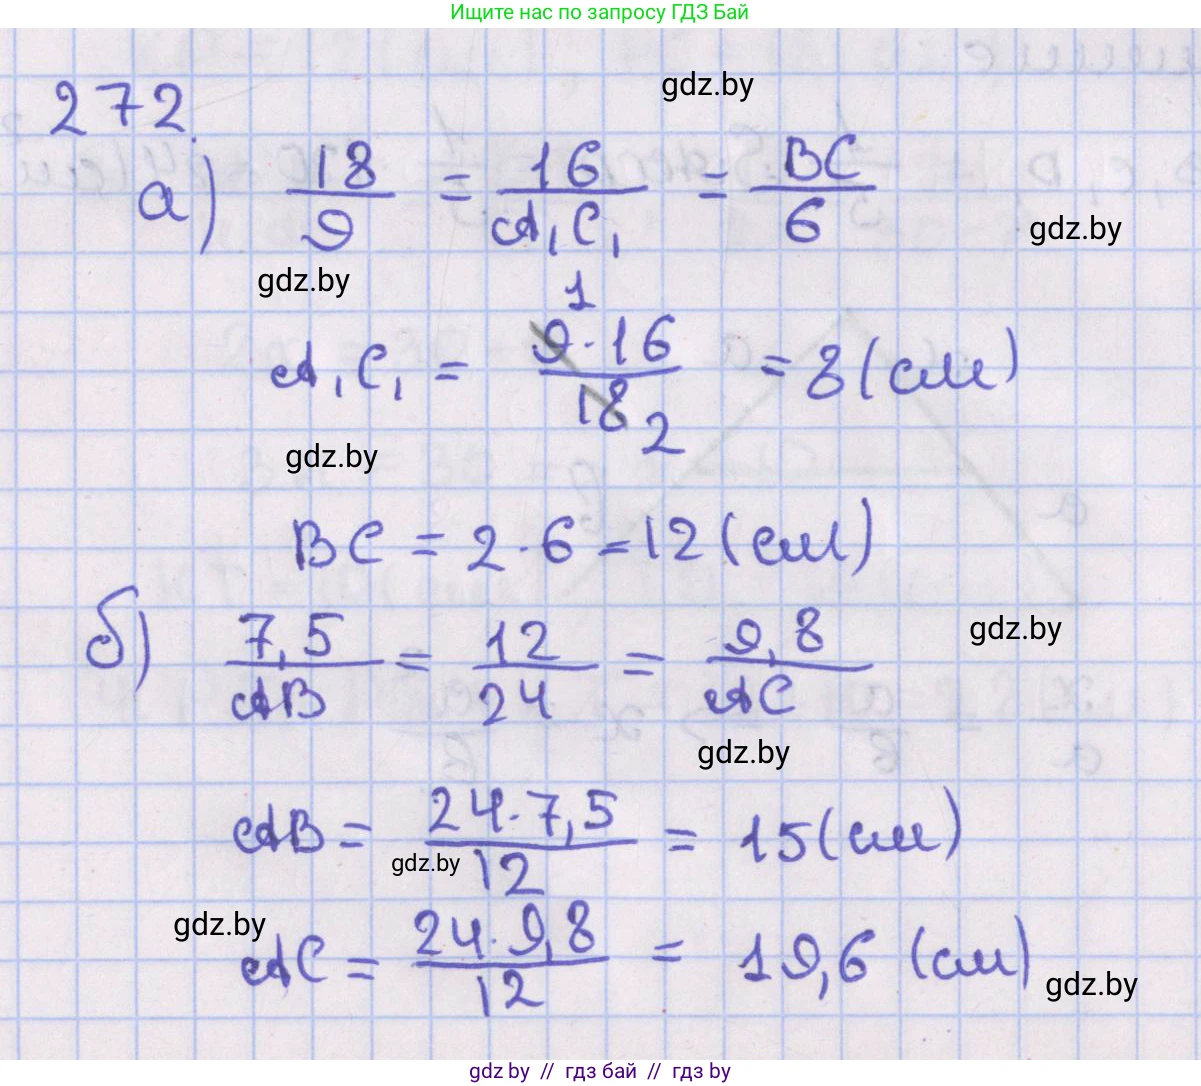 Ищите нас по запросу ГДЗ Бай
gdz.by
272.
а) 18/9 = 16/A₁C₁ = BC/6
gdz.by
gdz.by
A₁C₁ = 9·16/18 = 8 (см)
1
2
gdz.by
BC = 2·6 = 12 (см)
б) 7,5/AB = 12/24 = 9,8/AC
gdz.by
gdz.by
AB = 24·7,5/12 = 15 (см)
gdz.by
gdz.by
AC = 24·9,8/12 = 19,6 (см)
gdz.by
gdz by // гдз бай // гдз by